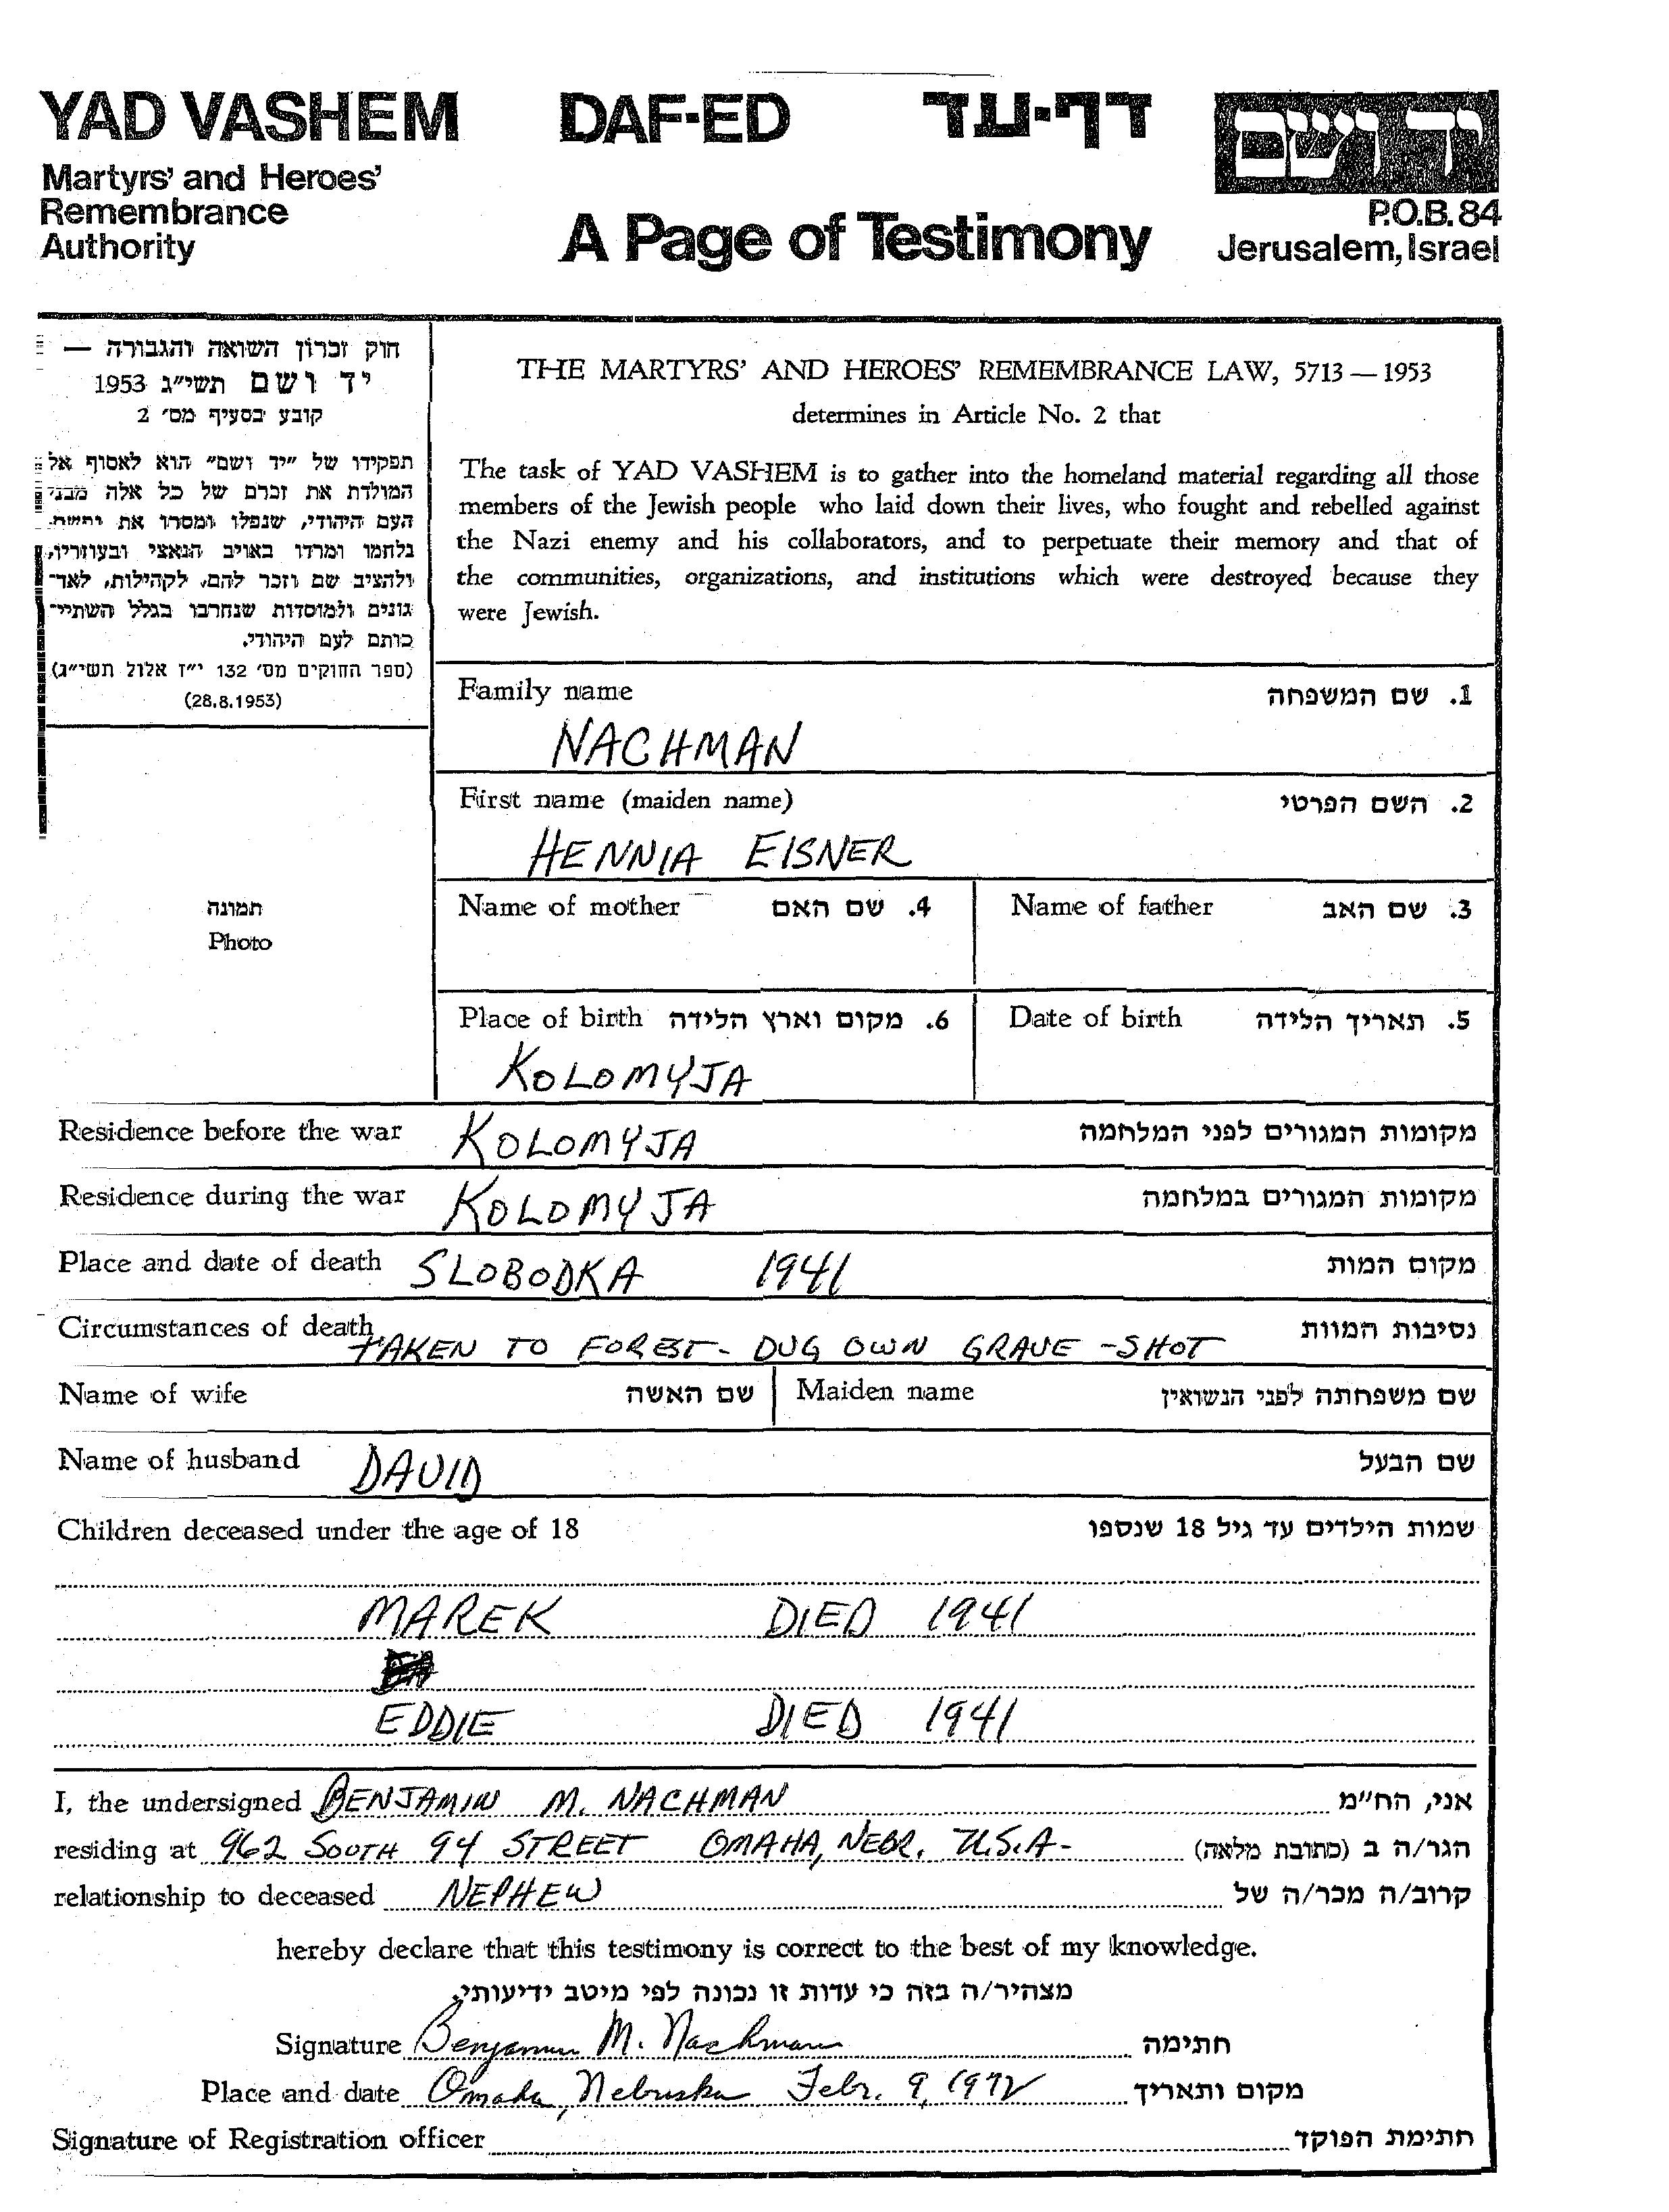 YAD VASHEM DAF-ED דף-עד יד ושם
Martyrs' and Heroes'
Remembrance
Authority
A Page of Testimony
P.O.B. 84
Jerusalem, Israel
חוק זכרון השואה והגבורה —
יד ושם תשי״ג 1953
קובע בסעיף מס׳ 2
תפקידו של ״יד ושם״ הוא לאסוף אל
המולדת את זכרם של כל אלה מבני
העם היהודי, שנפלו ומסרו את
נלחמו ומרדו באויב הנאצי ובעוזריו,
ולהציב שם וזכר להם, לקהילות, לאר־
גונים ולמוסדות שנחרבו בגלל השתיי־
כותם לעם היהודי.
(ספר החוקים מס׳ 132 י״ז אלול תשי״ג)
(28.8.1953)
תמונה
Photo
THE MARTYRS' AND HEROES' REMEMBRANCE LAW, 5713 — 1953
determines in Article No. 2 that
The task of YAD VASHEM is to gather into the homeland material regarding all those
members of the Jewish people who laid down their lives, who fought and rebelled against
the Nazi enemy and his collaborators, and to perpetuate their memory and that of
the communities, organizations, and institutions which were destroyed because they
were Jewish.
Family name 1. שם המשפחה
NACHMAN
First name (maiden name) 2. השם הפרטי
HENNIA EISNER
Name of mother 4. שם האם Name of father 3. שם האב
Place of birth 6. מקום וארץ הלידה Date of birth 5. תאריך הלידה
KOLOMYJA
Residence before the war KOLOMYJA מקומות המגורים לפני המלחמה
Residence during the war KOLOMYJA מקומות המגורים במלחמה
Place and date of death SLOBODKA 1941 מקום המות
Circumstances of death TAKEN TO FOREST - DUG OWN GRAVE - SHOT נסיבות המוות
Name of wife שם האשה Maiden name שם משפחתה לפני הנשואין
Name of husband DAVID שם הבעל
Children deceased under the age of 18 שמות הילדים עד גיל 18 שנספו
MAREK DIED 1941
EDDIE DIED 1941
I, the undersigned BENJAMIN M. NACHMAN אני, הח״מ
residing at 962 SOUTH 94 STREET OMAHA, NEBR. U.S.A- הגר/ה ב (כתובת מלאה)
relationship to deceased NEPHEW קרוב/ה מכר/ה של
hereby declare that this testimony is correct to the best of my knowledge.
מצהיר/ה בזה כי עדות זו נכונה לפי מיטב ידיעותי.
Signature Benjamin M. Nachman חתימה
Place and date Omaha, Nebraska Febr. 9, 1972 מקום ותאריך
Signature of Registration officer חתימת הפוקד